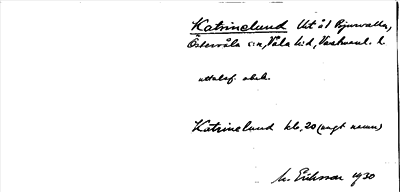 Katrinelund Utå l Bjurvalla,
Östervåla s:n, Våla h:d, Västmanl. l.
uttalaf. obek.
Katrinelund kb, 20 (ungt namn)
M. Eriksson 1930